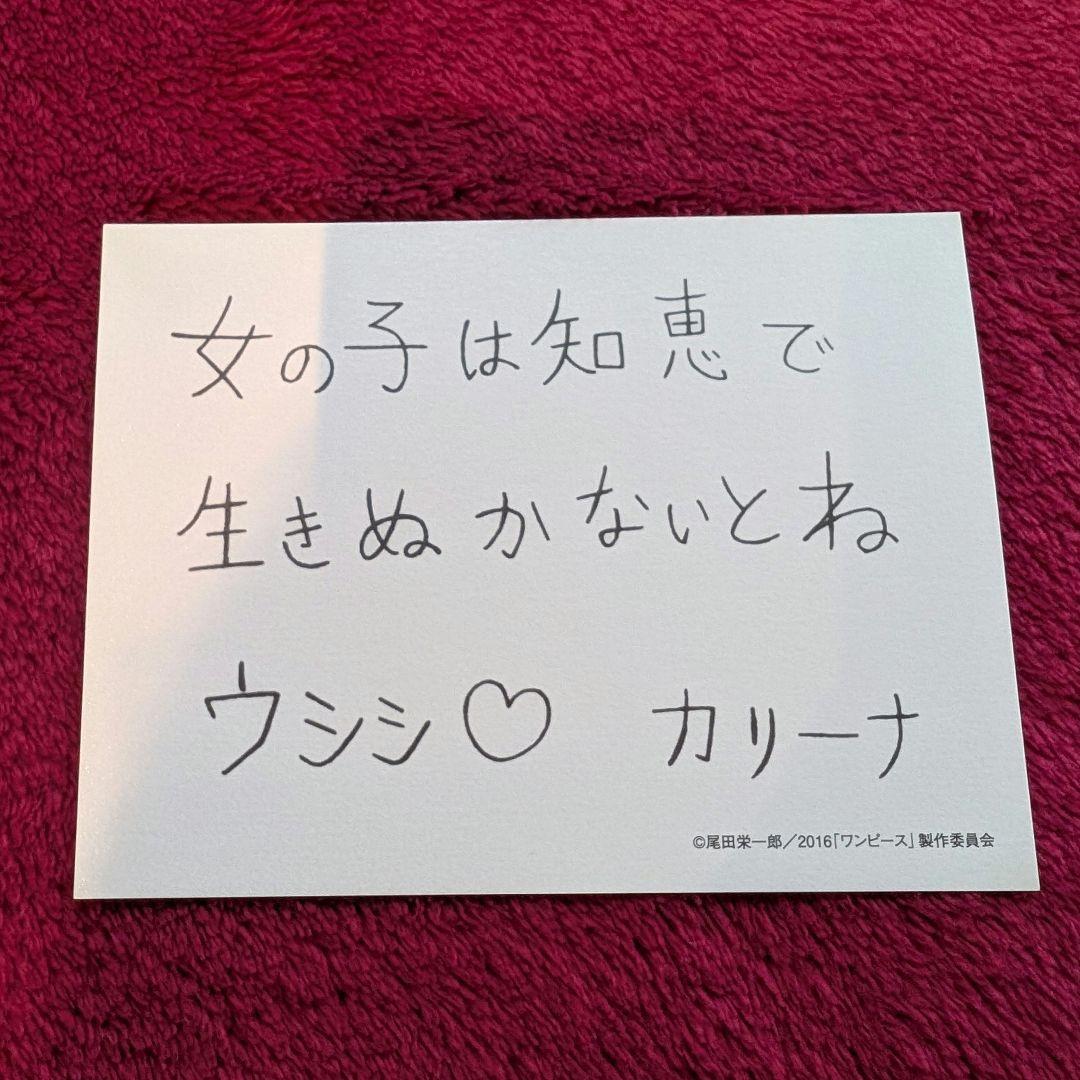 女の子は知恵で
生きぬかないとね
ウシシ♡ カリーナ
©尾田栄一郎／2016「ワンピース」製作委員会